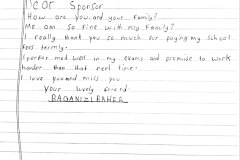 Dear Sponsor
How are you and your family?
Me am so fine with my family?
I really thank you so much for paying my school
fees termly.
I perfor med well in my exams and promise to work
harder than that next time.
I love you and miss you
Your lovely friend.
BAGANIZI BAHER